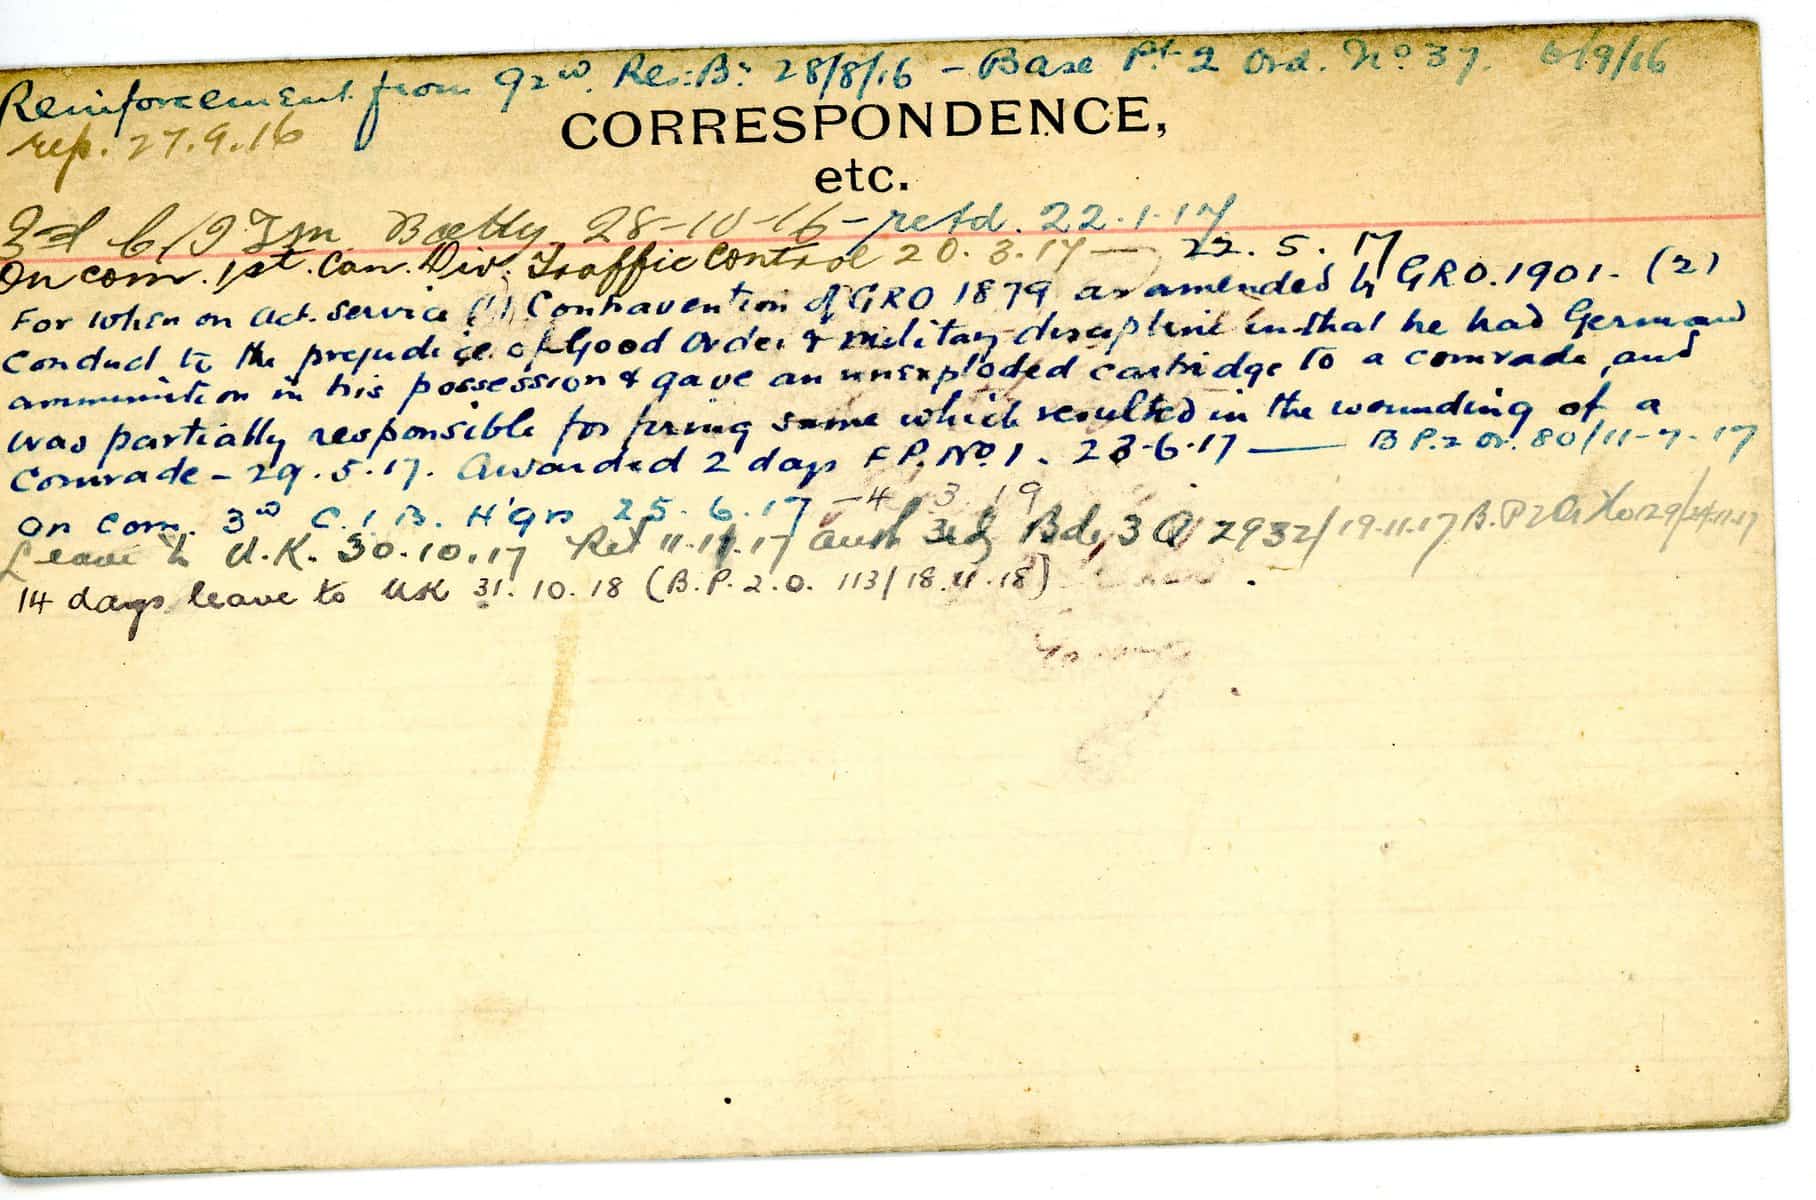 Reinforcement from 92nd. Res: Bn: 28/8/16 - Base Pt 2 Ord. No 37. 6/9/16
rep. 27.9.16
CORRESPONDENCE,
etc.
3rd C/I T m Battry 28-10-16 - retd. 22.1.17
On com. 1st. Can. Div. Traffic Control 20.3.17 — 22.5.17
For When on Act. Service (1) Contravention of GRO 1879 as amended by GRO. 1901. (2)
Conduct to the prejudice of Good Order & Military discipline in that he had German
ammunition in his possession & gave an unexploded cartridge to a comrade, and
was partially responsible for firing same which resulted in the wounding of a
Comrade - 29.5.17. Awarded 2 days F.P. No 1. 23-6-17 —— B P.2 Or. 80/11-7-17
On Com. 3rd C.I.B. H'qrs 25.6.17 - 4.3.19
Leave to U.K. 30.10.17 Ret 11.11.17 auth 3rd Bde 3 Q 2932/19.11.17 B.P 2 O No 129/24.11.17
14 days leave to UK 31.10.18 (B.P.2.O. 113/18.11.18)